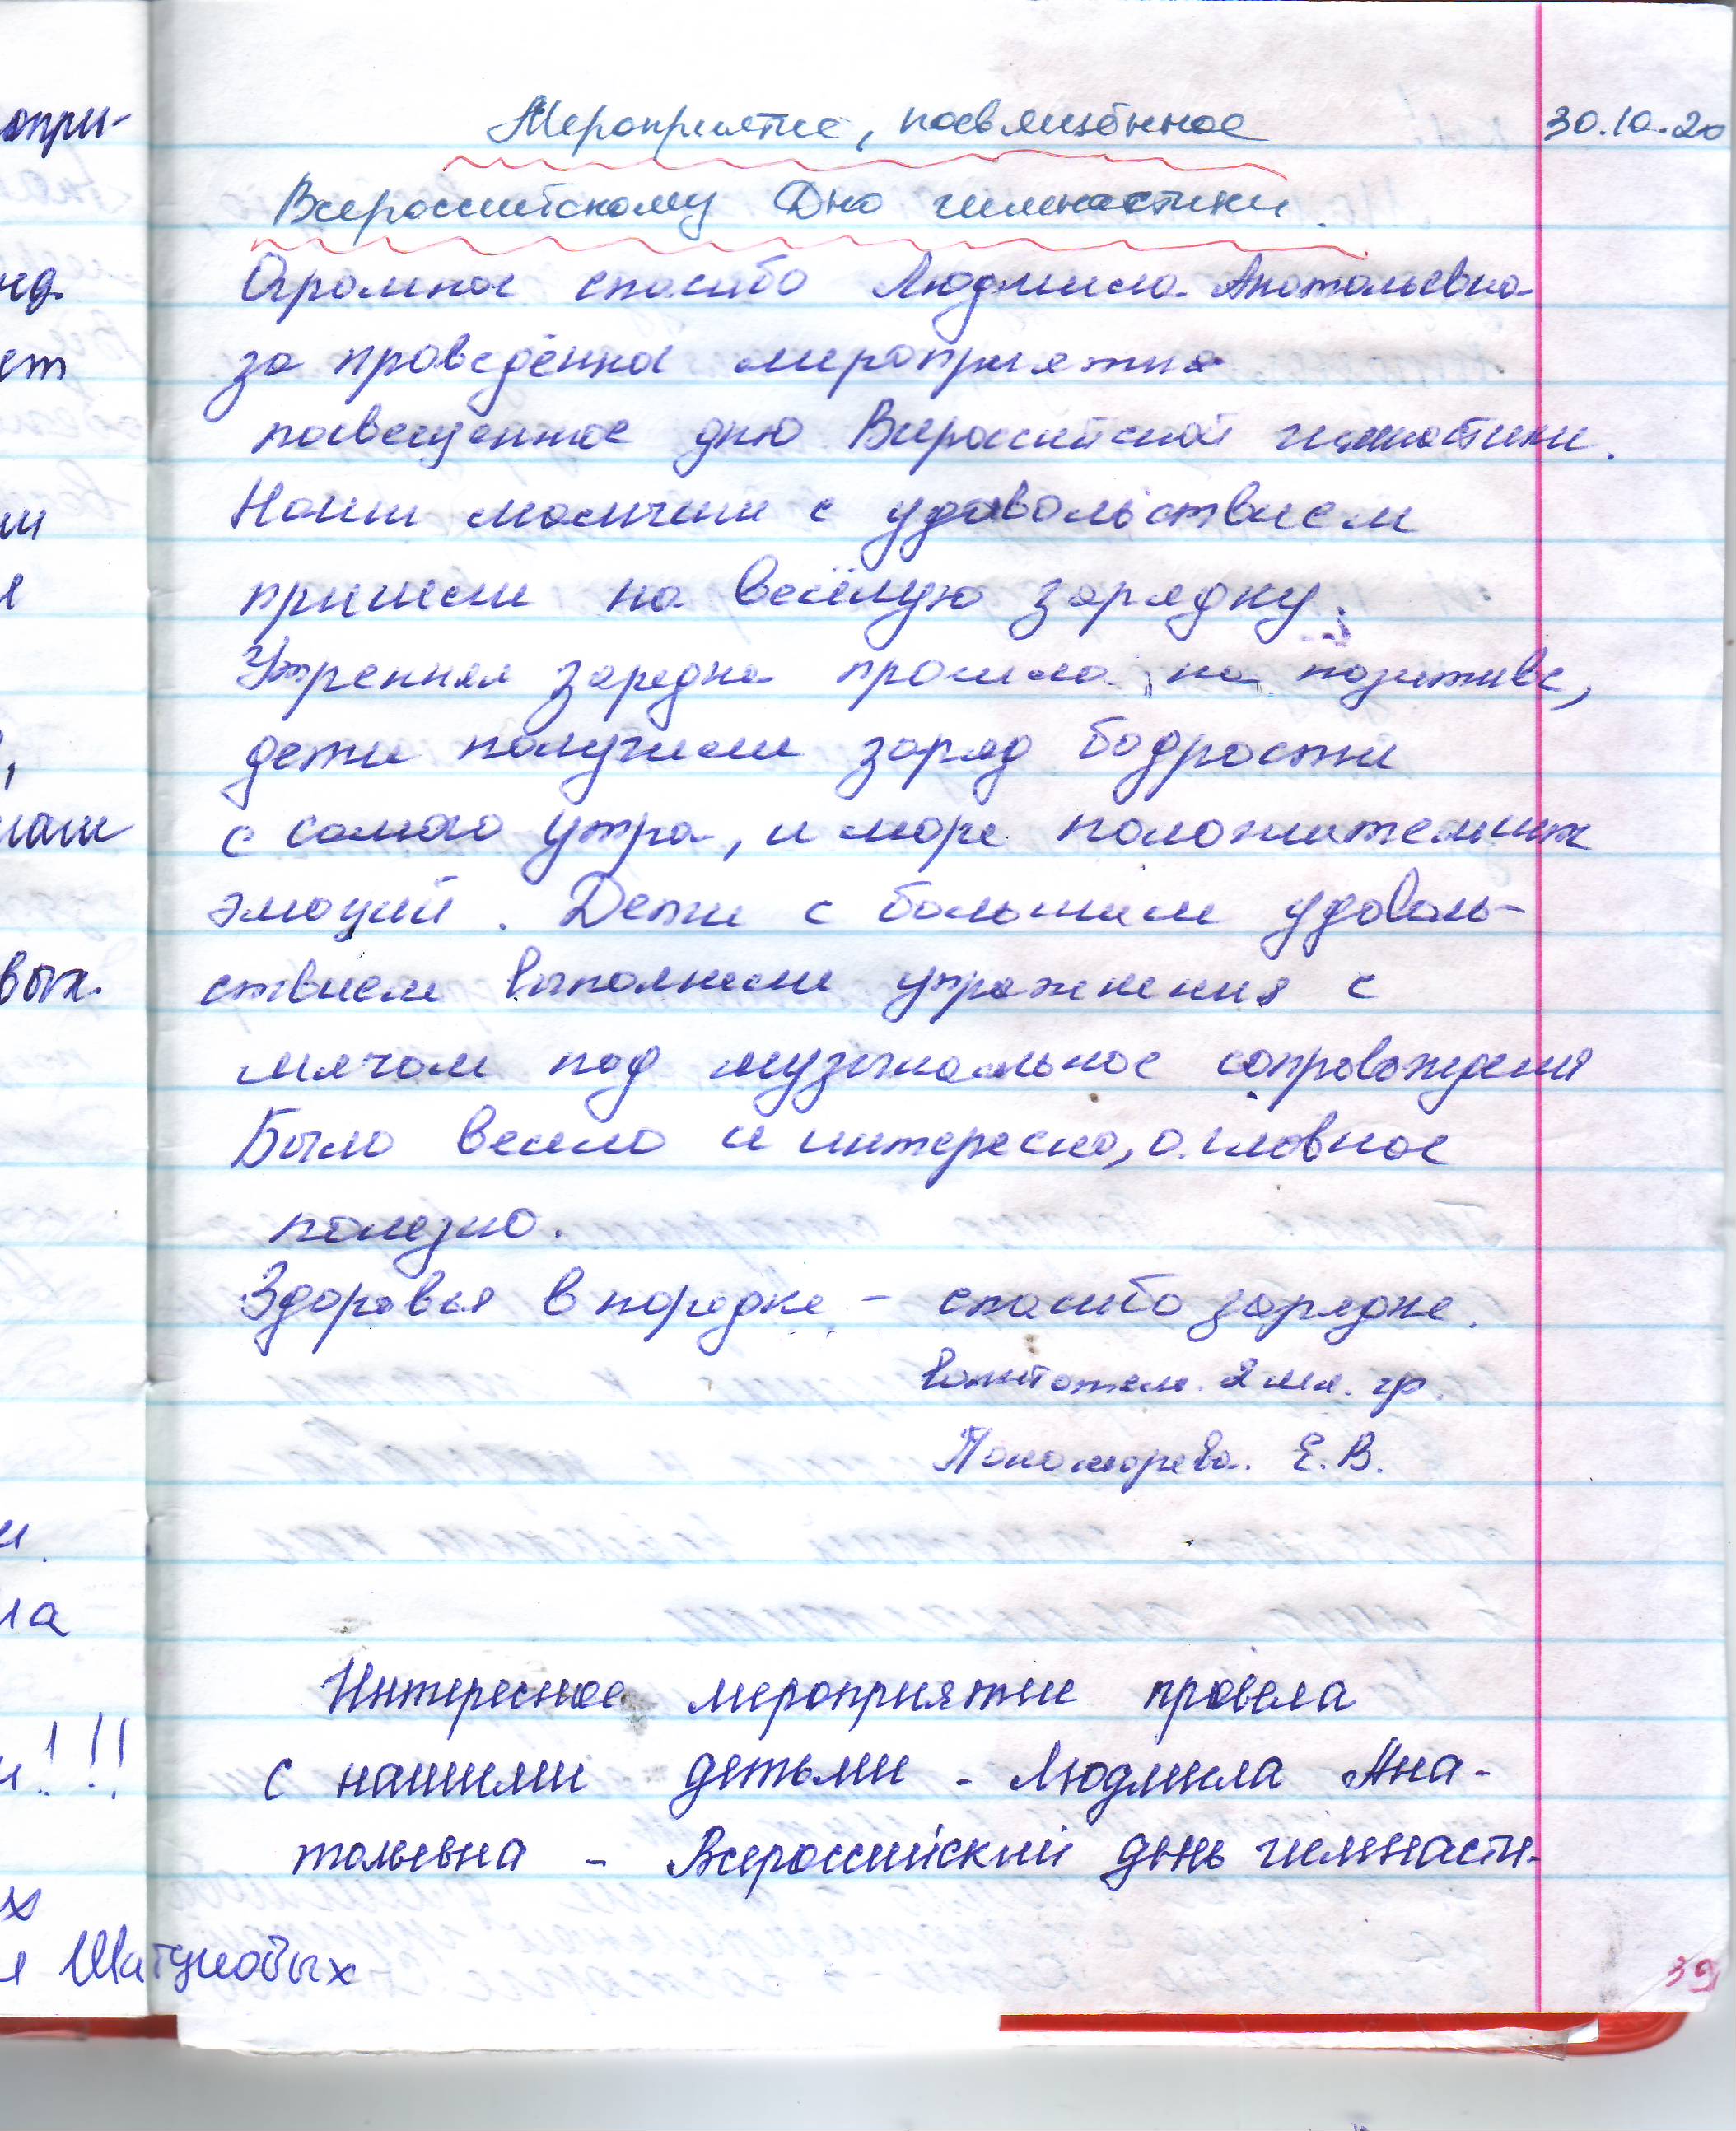 Мероприятие, посвящённое
30.10.20
Всероссийскому Дню гимнастики.
Огромное спасибо Людмила Анатольевна
за проведённое мероприятия
посвещенное дню Всероссийской гимнастики.
Наши мальчики с удовольствием
пришли на весёлую зарядку.
Утренняя зарядка прошла на позитиве,
дети получили заряд бодрости
с самого утра, и море положительных
эмоций. Дети с большим удоволь-
ствием выполнили упражнения с
мячом под музыкальное сопровождения
Было весело и интересно, а главное
полезно.
Здоровья в порядке - спасибо зарядке.
2 мл. гр.
Пономарева. Е.В.
Интересное мероприятие провела
с нашими детьми - Людмила Ана-
тольевна - Всероссийский день гимнасти-
39
опри-
ет
вых.
ла
!!!